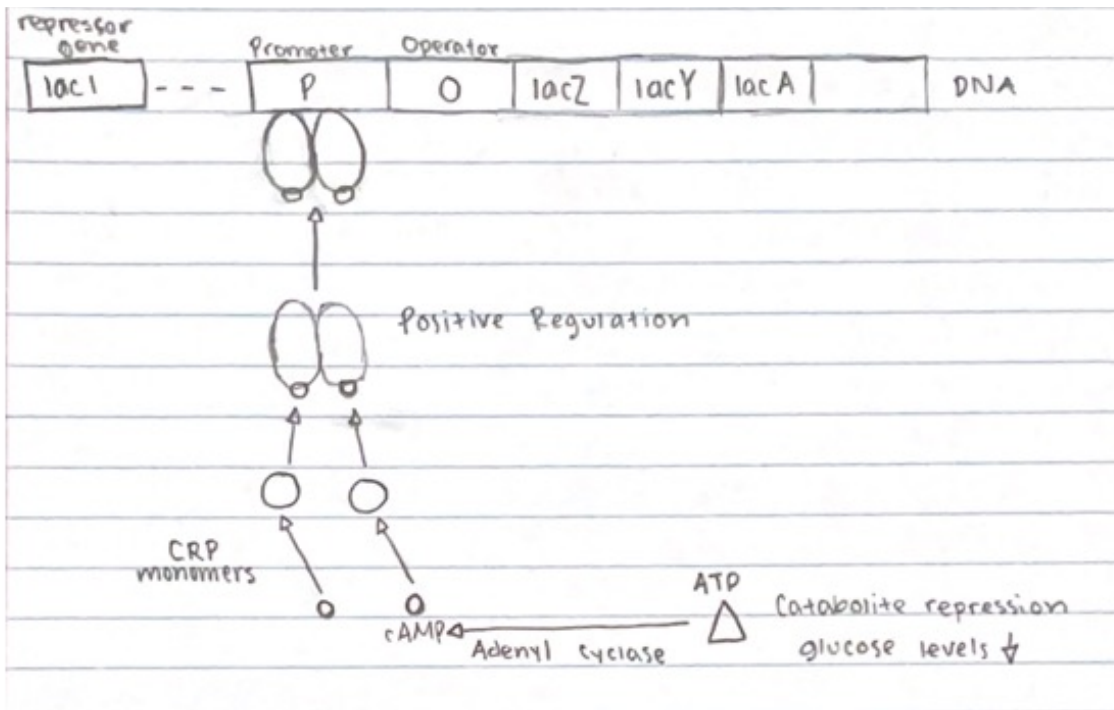 repressor
gene
Promoter
Operator
lac1
P
O
lacZ
lacY
lacA
DNA
Positive Regulation
CRP
monomers
ATP
cAMP
Adenyl cyclase
Catabolite repression
glucose levels ↓